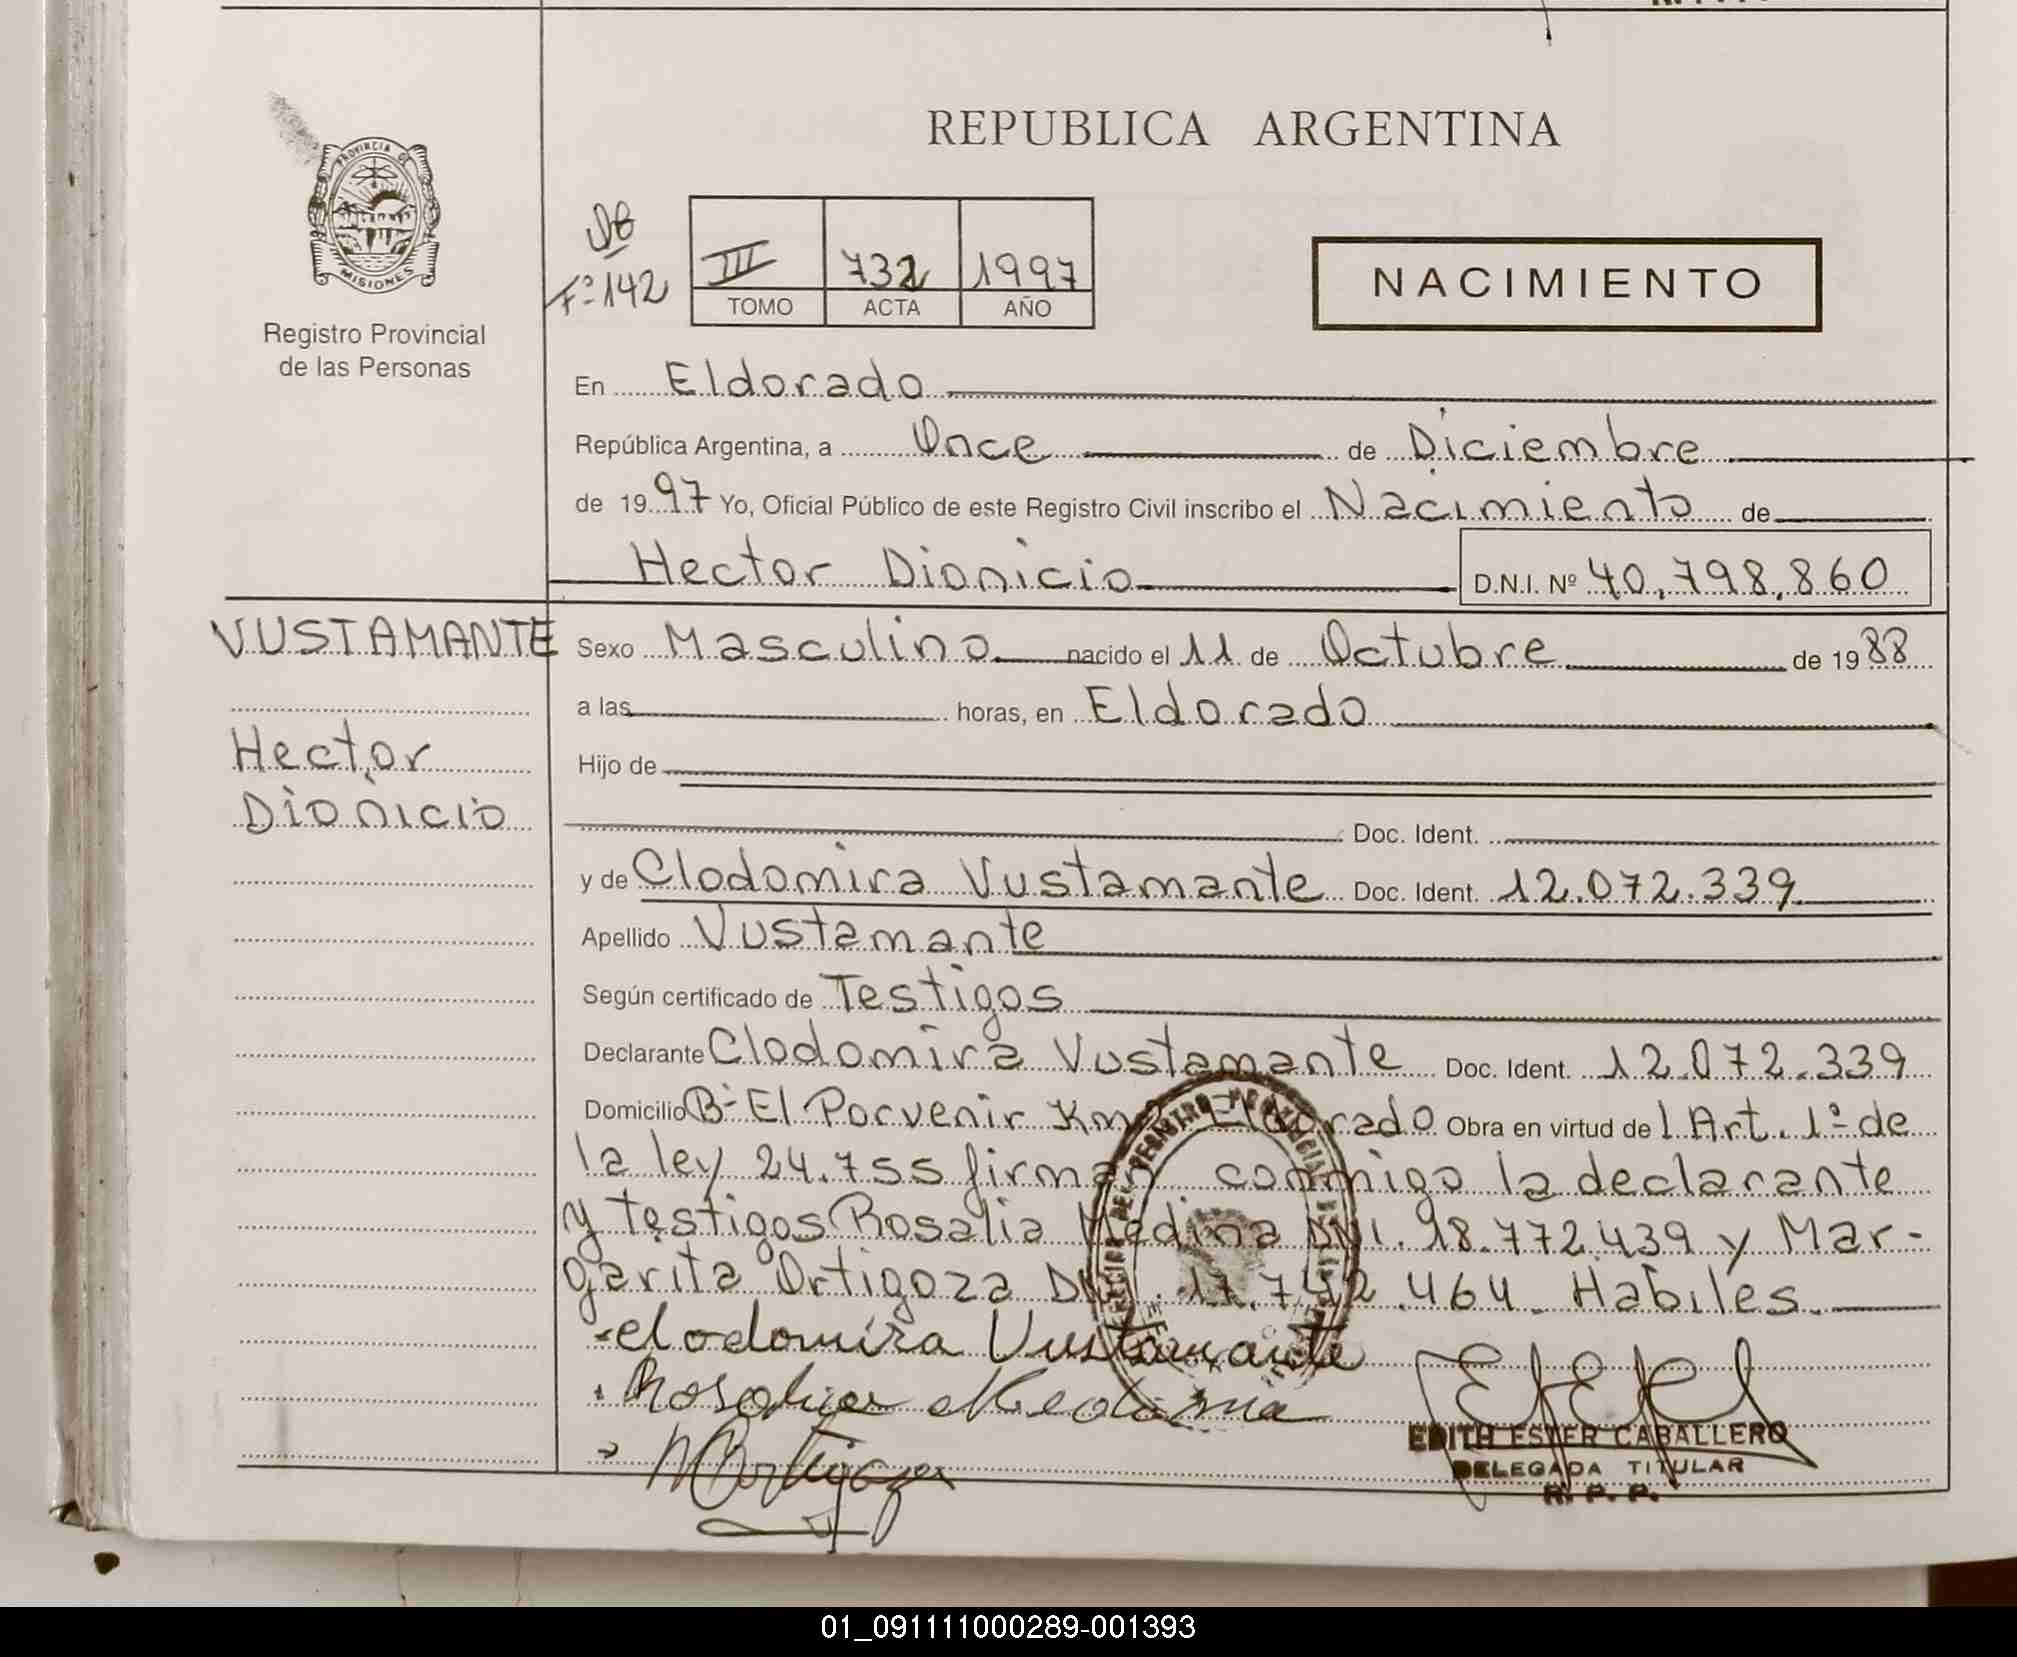 REPUBLICA ARGENTINA
PROVINCIA DE
MISIONES
Registro Provincial
de las Personas
Fº 142
III 732 1997
TOMO ACTA AÑO
NACIMIENTO
En Eldorado
República Argentina, a Once de Diciembre
de 1997 Yo, Oficial Público de este Registro Civil inscribo el Nacimiento de
Hector Dionicio D.N.I. Nº 40.798.860
VUSTAMANTE
Hector
Dionicio
Sexo Masculino nacido el 11 de Octubre de 1988
a las horas, en Eldorado
Hijo de
Doc. Ident.
y de Clodomira Vustamante Doc. Ident. 12.072.339
Apellido Vustamante
Según certificado de Testigos
Declarante Clodomira Vustamante Doc. Ident. 12.072.339
Domicilio Bº El Porvenir Km Eldorado Obra en virtud del Art. 1º de
la ley 24.755 firman conmigo la declarante
y testigos Rosalia Medina DNI. 18.772.439 y Mar-
garita Ortigoza DNI. 17.742.464. Habiles.
Clodomira Vustamante
Rosalia Medina
MOrtigoza
EDITH ESTER CABALLERO
DELEGADA TITULAR
R. P. P.
01_091111000289-001393